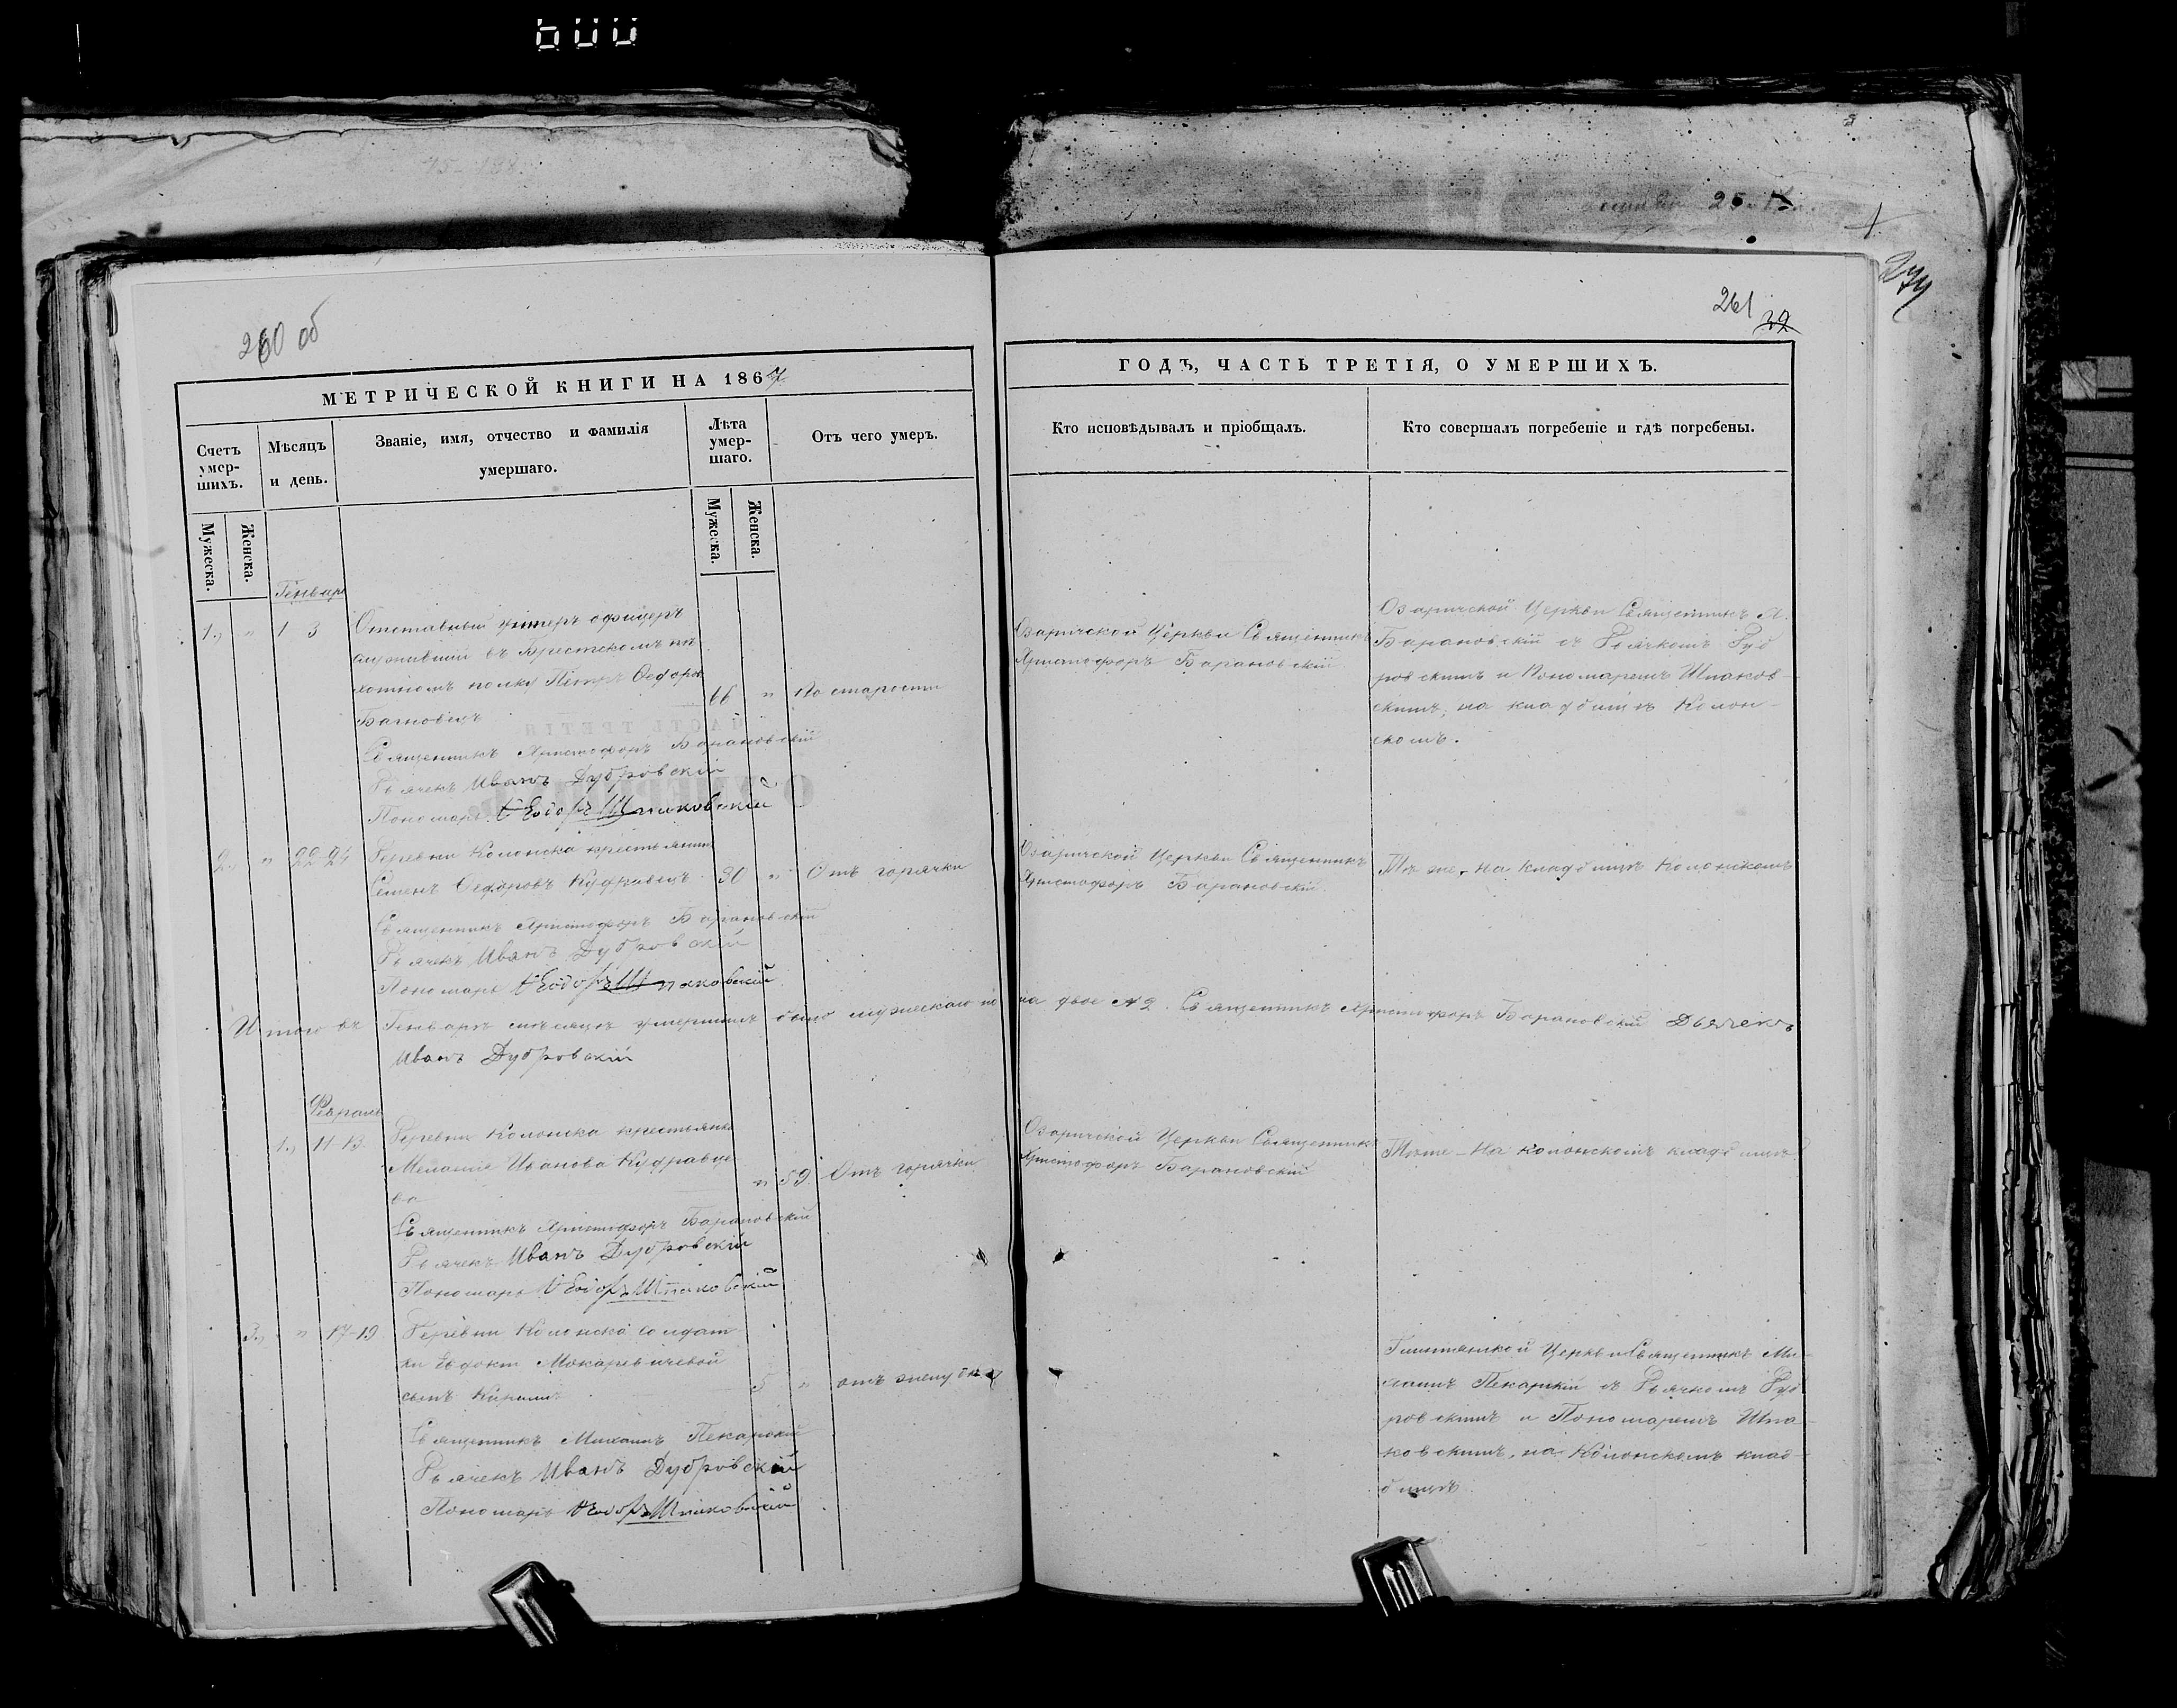 600
25
274
260 об
261
29
МЕТРИЧЕСКОЙ КНИГИ НА 1867
ГОДЪ, ЧАСТЬ ТРЕТІЯ, О УМЕРШИХЪ.
Счетъ умер-шихъ.
Мѣсяцъ и день.
Званіе, имя, отчество и фамилія умершаго.
Лѣта умер-шаго.
Отъ чего умеръ.
Кто исповѣдывалъ и пріобщалъ.
Кто совершалъ погребеніе и гдѣ погребены.
Мужеска.
Женска.
Мужеска.
Женска.
Генварь
1., " 1 3
Отставный унтеръ офицеръ
служившій въ Брестскомъ пѣ
хотномъ полку Петръ Ѳедоровъ
66 " По старости
Озаричской Церкви Священникъ
Христофоръ Барановскій
Озаричской Церкви Священникъ Х.
Барановскій съ Дьячкомъ Дуб
ровскимъ и Пономаремъ Шпаков-
скимъ, на кладбищѣ Колон-
скомъ.
Священникъ Христофоръ Барановскій
Дьячекъ Иванъ Дубровскій
Пономарь Ѳеодоръ Шпаковскій
2., " 22-24
Деревни Колонска крестьянинъ
Семенъ Ѳедоровъ Кудравецъ
30 " Отъ горячки
Озаричской Церкви Священникъ
Христофоръ Барановскій
Тѣ же, на кладбищѣ Колонскомъ
Священникъ Христофоръ Барановскій
Дьячекъ Иванъ Дубровскій
Пономарь Ѳеодоръ Шпаковскій
Итого въ Генварѣ мѣсяцѣ умершихъ было мужескаго пола двое №2. Священникъ Христофоръ Барановскій Дьячекъ
Иванъ Дубровскій
Февраль
1., 11-13.
Деревни Колонска крестьянка
Меланія Иванова Кудравце
ва
" 59. Отъ горячки
Озаричской Церкви Священникъ
Христофоръ Барановскій
Тѣже - На Колонскомъ кладбищѣ
Священникъ Христофоръ Барановскій
Дьячекъ Иванъ Дубровскій
Пономарь Ѳеодоръ Шпаковскій
3., " 17-19
Деревни Колонска солдат
ки Евдокіи Макаревичевой
сынъ Кириллъ
5 "
Церкви Священникъ Ми-
хаилъ Пекарскій съ Дьячкомъ Дуб
ровскимъ и Пономаремъ Шпа-
ковскимъ, на Колонскомъ клад-
бищѣ.
Священникъ Михаилъ Пекарскій
Дьячекъ Иванъ Дубровскій
Пономарь Ѳеодоръ Шпаковскій